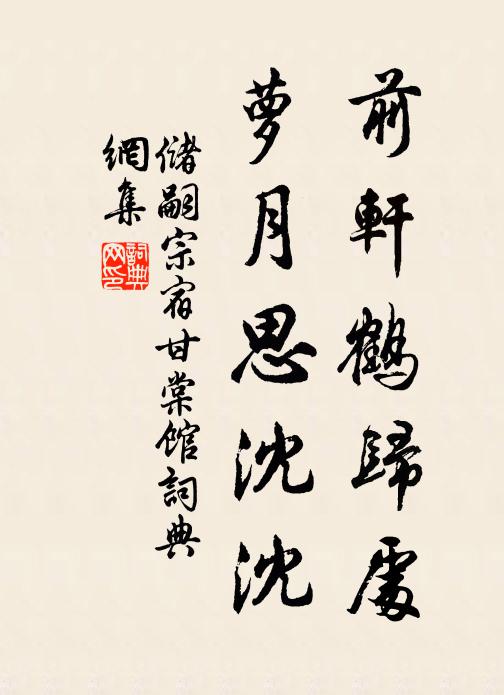 前軒鶴歸處
夢月思沈沈
儲嗣宗宿甘棠館詞典
網集
詞典網印